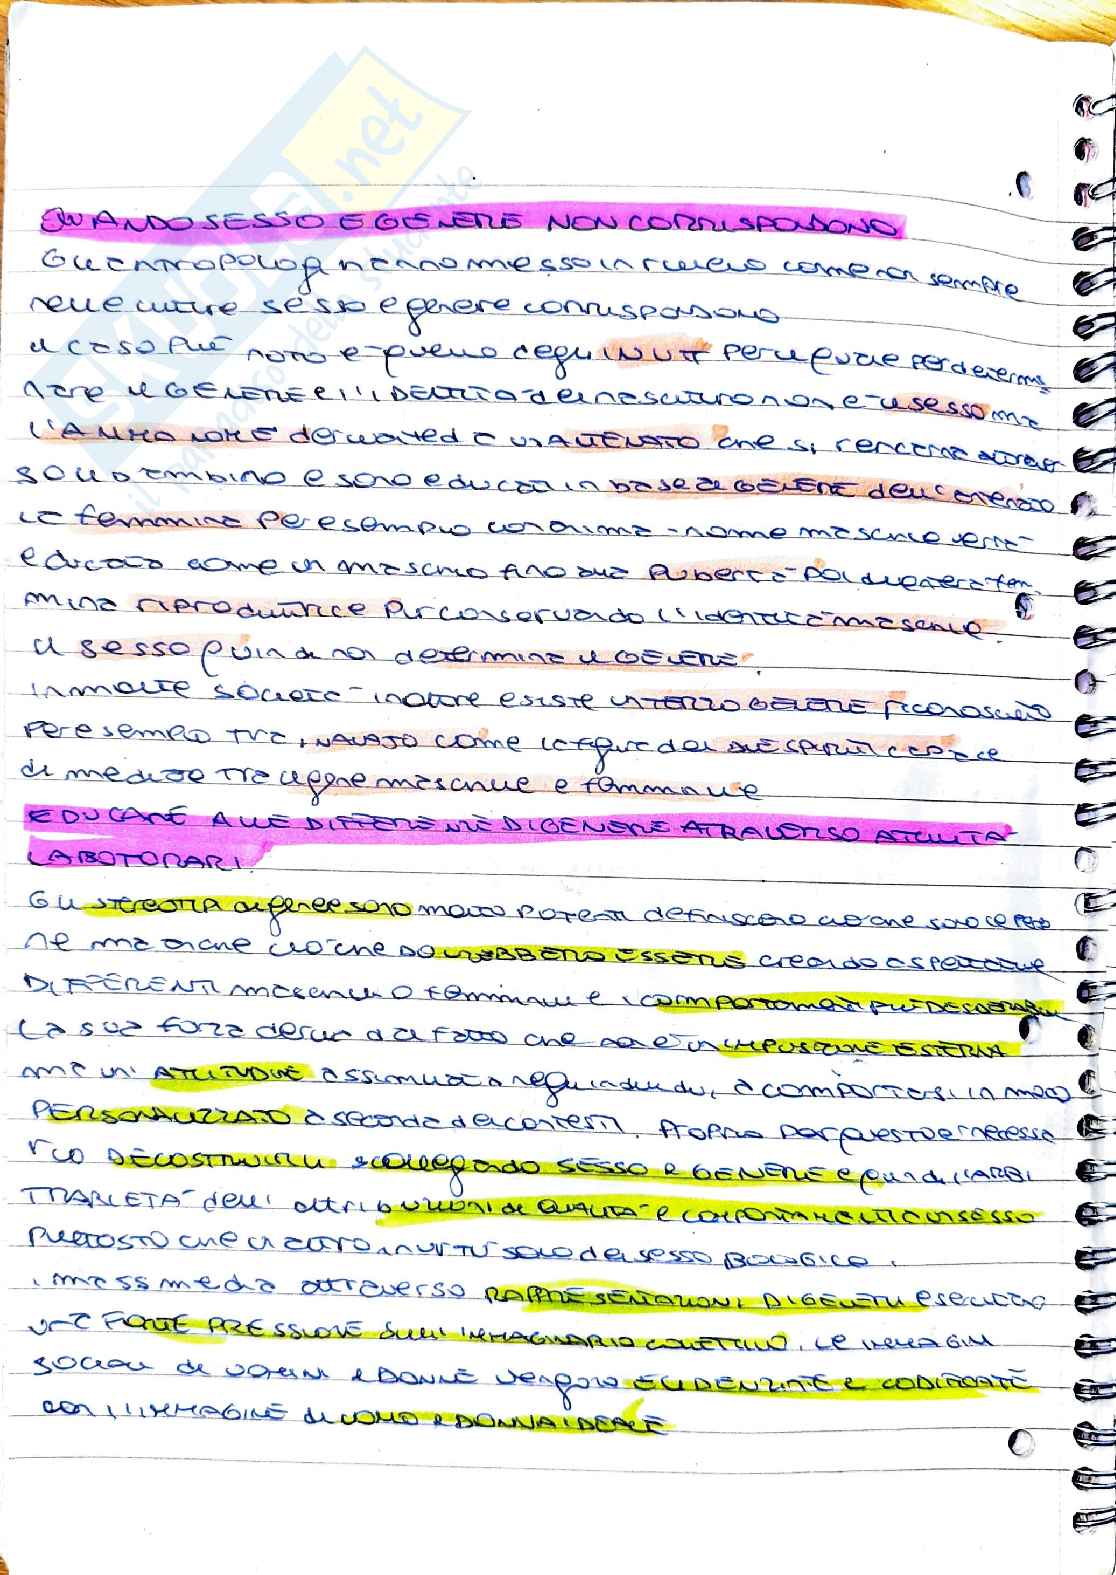 QUANDO SESSO E GENERE NON CORRISPONDONO
Gli antropologi hanno messo in rilievo come non sempre
nelle culture sesso e genere corrispondono
il caso più noto è quello degli INUIT per il quale per determi
nare il GENERE e l'IDENTITÀ del nascituro non è il sesso ma
L'ANIMA NOME derivated a un ANTENATO che si rencarna attraver
so il bambino e sono educati in base al GENERE dell'antenato
la femmina per esempio con anima-nome maschile verrà
educata come un maschio fino alla pubertà poi diventerà fem
mina riproduttrice pur conservando l'identità maschile.
il sesso quindi non determina il GENERE.
in molte società inoltre esiste un TERZO GENERE riconosciuto
per esempio tra i NAVAJO come la figura dei DUE SPIRITI capace
di mediare tra il genere maschile e femminile
EDUCARE ALLE DIFFERENZE DI GENERE ATRAVERSO ATTIVITÀ
LABOTORARI.
Gli STEREOTIPI di genere sono molto potenti definiscono ciò che sono le perso
ne ma anche ciò che DOVREBBERO ESSERE creando aspettative
DIFFERENTI maschili o femminili e i COMPORTAMENTI PIÙ DESIDERABILI
La sua forza deriva dal fatto che non è un IMPOSIZIONE ESTERNA
ma un' ATTITUDINE assimilata negli individui, a comportarsi in modo
PERSONALIZZATO a seconda dei contesti. Proprio per questo è necessa
rio DECOSTRUIRLI scollegando SESSO e GENERE e quindi l'ARBI
TRARIETÀ dell' attribuzioni di QUALITÀ e COMPORTAMENTI a un SESSO
PIUTTOSTO che un altro in virtù solo del sesso BIOLOGICO.
i mass media attraverso RAPPRESENTAZIONI DI GENERE esercitano
una FORTE PRESSIONE sull' IMMAGINARIO COLLETTIVO. Le IMMAGINI
sociali di uomini e DONNE vengono EVIDENZIATE e CODIFICATE
con l'IMMAGINE di UOMO e DONNA IDEALE
SKUOLA.net
il paradiso dello studente